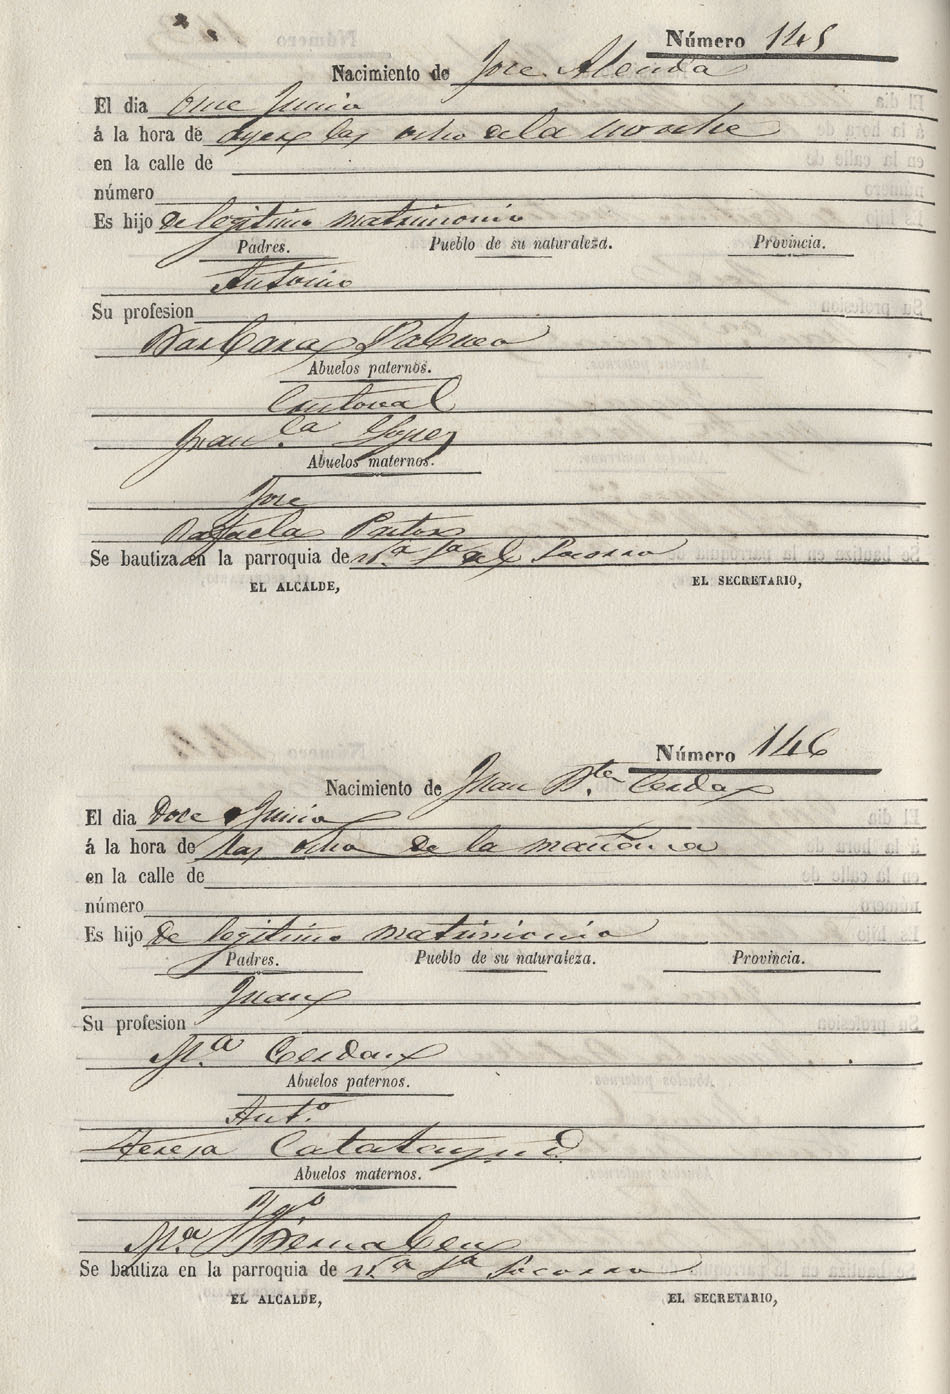 Número 145
Nacimiento de Jose Alenda
El dia once Junio
á la hora de ayer las ocho de la noche
en la calle de
número
Es hijo de legitimo matrimonio
Padres. Pueblo de su naturaleza. Provincia.
Antonio
Su profesion
Barbara
Abuelos paternos.
Cristoval
Fran.ca Lopez
Abuelos maternos.
Jose
Rafaela Pastor
Se bautiza en la parroquia de N.a S.a del Socorro
EL ALCALDE, EL SECRETARIO,
Número 146
Nacimiento de Juan B.ta Cerda
El dia Doce Junio
á la hora de las ocho de la mañana
en la calle de
número
Es hijo de legitimo matrimonio
Padres. Pueblo de su naturaleza. Provincia.
Juan
Su profesion
M.a Cerdan
Abuelos paternos.
Ant.o
Teresa Calatayud
Abuelos maternos.
M.a Bernabeu
Se bautiza en la parroquia de N.a S.a Socorro
EL ALCALDE, EL SECRETARIO,